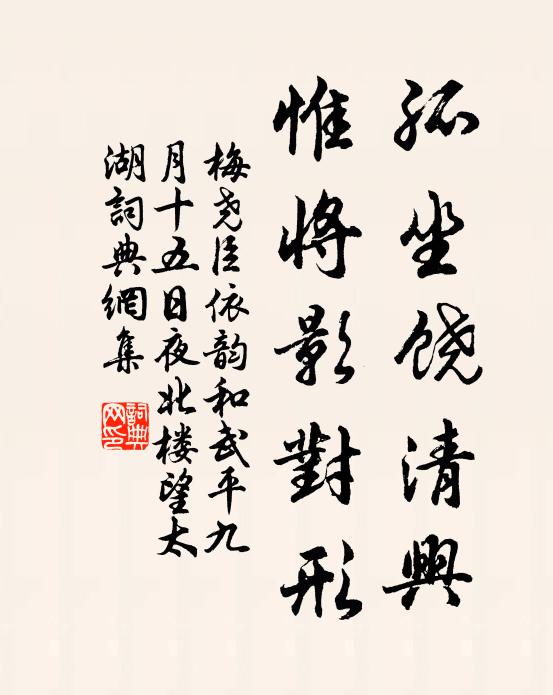 孤坐饶清興
惟將影對形
梅尧臣依韵和武平九
月十五日夜北楼望太
湖詞典網集
詞典网印